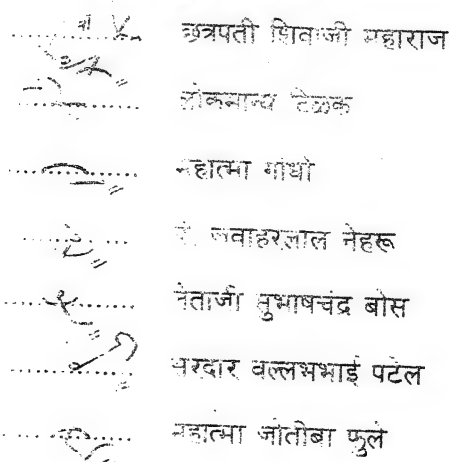 छत्रपती शिवाजी महाराज
लोकमान्य टिळक
महात्मा गांधी
पं. जवाहरलाल नेहरू
नेताजी सुभाषचंद्र बोस
सरदार वल्लभभाई पटेल
महात्मा जोतीबा फुले